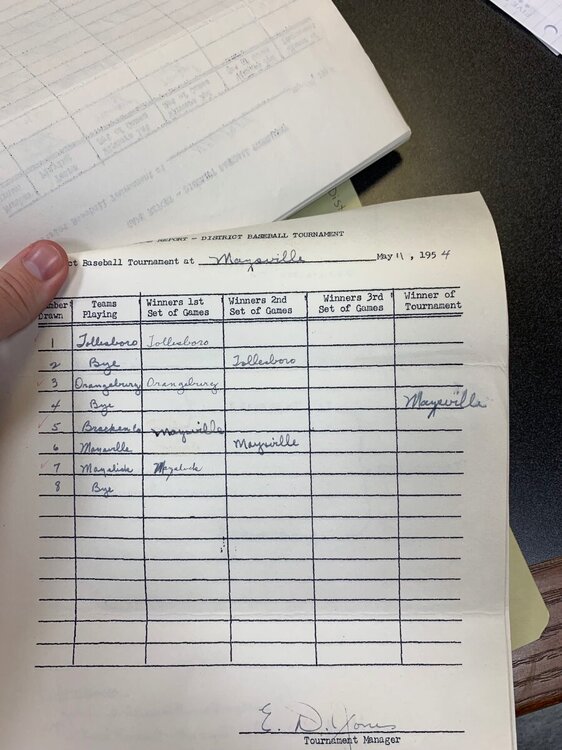 REPORT - DISTRICT BASEBALL TOURNAMENT
ct Baseball Tournament at Maysville May 11, 1954
umber Drawn Teams Playing Winners 1st Set of Games Winners 2nd Set of Games Winners 3rd Set of Games Winner of Tournament
1 Tollesboro Tollesboro
2 Bye Tollesboro
3 Orangeburg Orangeburg
4 Bye Maysville
5 Bracken Co Maysville
6 Maysville Maysville
7 Mayslick Mayslick
8 Bye
E. D. Jones
Tournament Manager